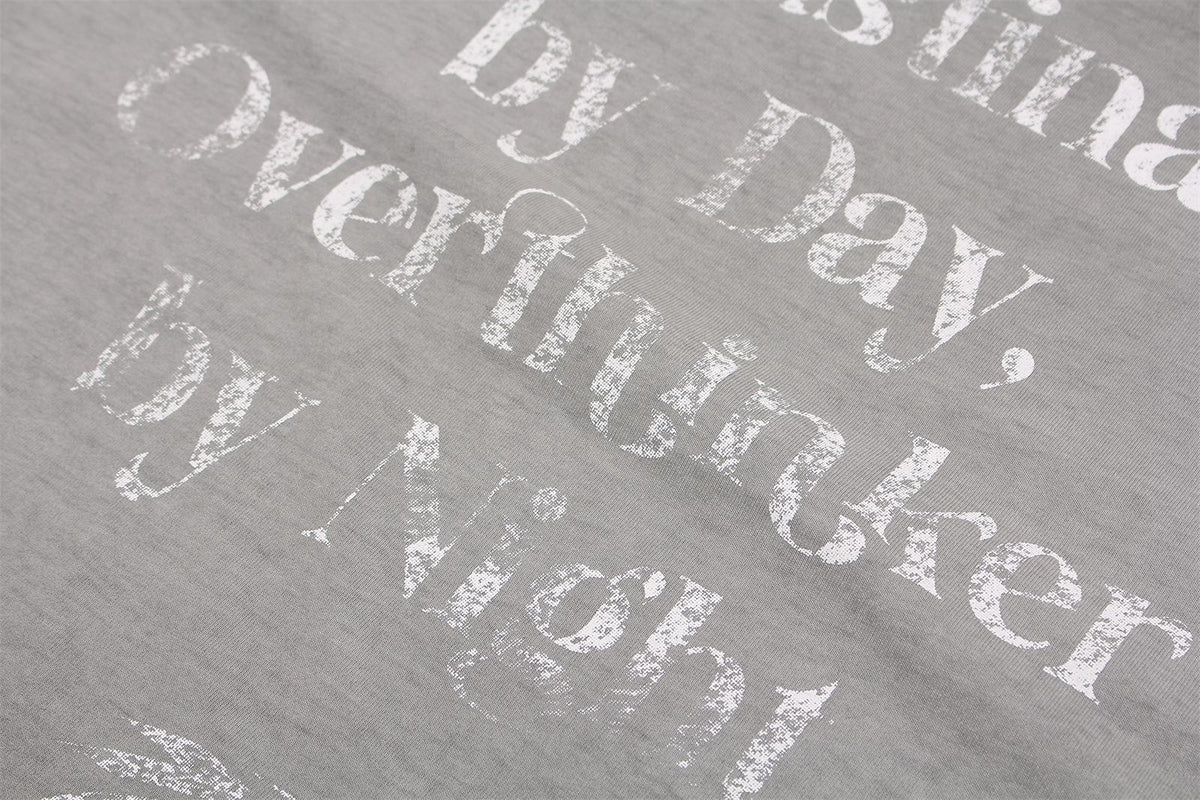 stina
by Day,
Overthinker
by Night